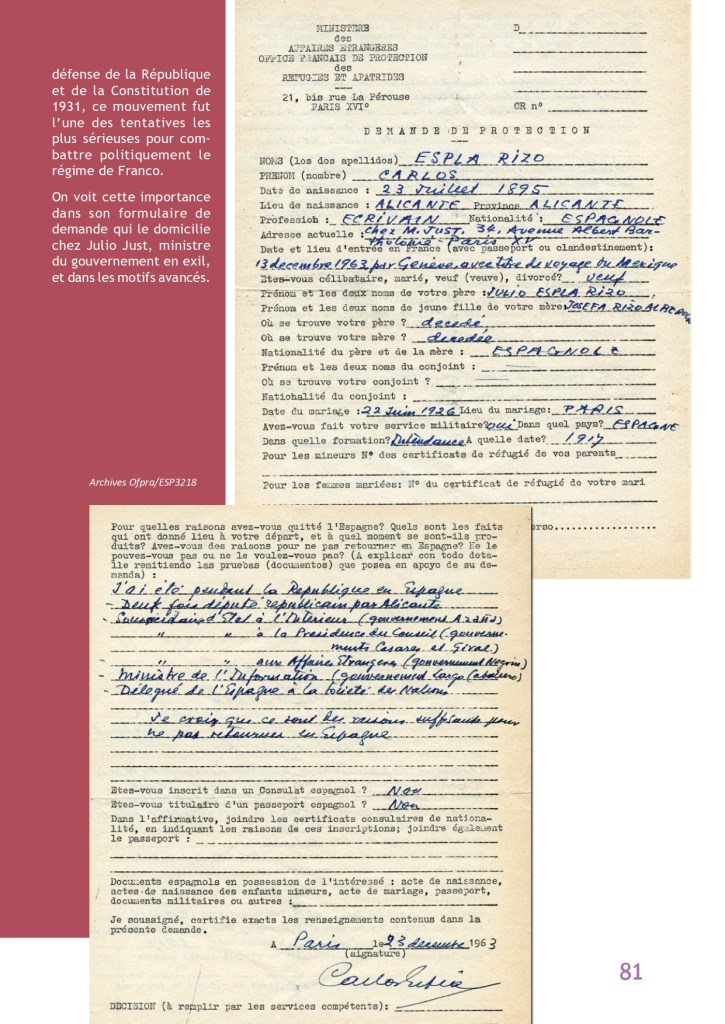 défense de la République
et de la Constitution de
1931, ce mouvement fut
l'une des tentatives les
plus sérieuses pour com-
battre politiquement le
régime de Franco.
On voit cette importance
dans son formulaire de
demande qui le domicilie
chez Julio Just, ministre
du gouvernement en exil,
et dans les motifs avancés.
Archives Ofpra/ESP3218
MINISTERE
des
AFFAIRES ETRANGERES
OFFICE FRANCAIS DE PROTECTION
des
REFUGIES ET APATRIDES
21, bis rue La Pérouse
PARIS XVI°
D
CR n°
DEMANDE DE PROTECTION
NOMS (los dos apellidos) ESPLA RIZO
PRENOM (nombre) CARLOS
Date de naissance : 23 Juillet 1895
Lieu de naissance : ALICANTE Province ALICANTE
Profession : ECRIVAIN Nationalité : ESPAGNOLE
Adresse actuelle : chez M. JUST, 34, Avenue Albert Bar-
tholomé - Paris XV
Date et lieu d'entrée en France (avec passeport ou clandestinement):
13 decembre 1963, par Genève, avec titre de voyage du Mexique
Etes-vous célibataire, marié, veuf (veuve), divorcé? veuf
Prénom et les deux noms de votre père : JULIO ESPLA RIZO
Prénom et les deux noms de jeune fille de votre mère: JOSEFA RIZO
Où se trouve votre père ? decedé
Où se trouve votre mère ? decedée
Nationalité du père et de la mère : ESPAGNOLE
Prénom et les deux noms du conjoint :
Où se trouve votre conjoint ?
Nationalité du conjoint :
Date du mariage : 22 Juin 1926 Lieu du mariage: PARIS
Avez-vous fait votre service militaire? oui Dans quel pays? ESPAGNE
Dans quelle formation? Intendance A quelle date? 1917
Pour les mineurs N° des certificats de réfugié de vos parents
Pour les femmes mariées: N° du certificat de réfugié de votre mari
erso..................
Pour quelles raisons avez-vous quitté l'Espagne? Quels sont les faits
qui ont donné lieu à votre départ, et à quel moment se sont-ils pro-
duits? Avez-vous des raisons pour ne pas retourner en Espagne? Ne le
pouvez-vous pas ou ne le voulez-vous pas? (A explicar con todo deta-
lle remitiendo las pruebas (documentos) que posea en apoyo de su de-
manda) :
J'ai été pendant la Republique en Espagne
- Deux fois député republicain par Alicante
- Sous secretaire d'Etat à l'Interieur (gouvernement Azaña)
" " à la Presidence du Conseil (gouverne-
ments Casares et Giral)
- " " aux Affaires Etrangeres (gouvernement Negrin)
- Ministre de l'Information (gouvernement Largo Caballero)
- Délegué de l'Espagne à la Societé des Nations
Je crois que ce sont des raisons suffisante pour
ne pas retourner en Espagne
Etes-vous inscrit dans un Consulat espagnol ? Non
Etes-vous titulaire d'un passeport espagnol ? Non
Dans l'affirmative, joindre les certificats consulaires de nationa-
lité, en indiquant les raisons de ces inscriptions; joindre également
le passeport :
Documents espagnols en possession de l'intéressé : acte de naissance,
actes de naissance des enfants mineurs, acte de mariage, passeport,
documents militaires ou autres :
Je soussigné, certifie exacts les renseignements contenus dans la
présente demande.
A Paris le 23 decembre 1963
(signature)
Carlos Espla
DECISION (à remplir par les services compétents):
81